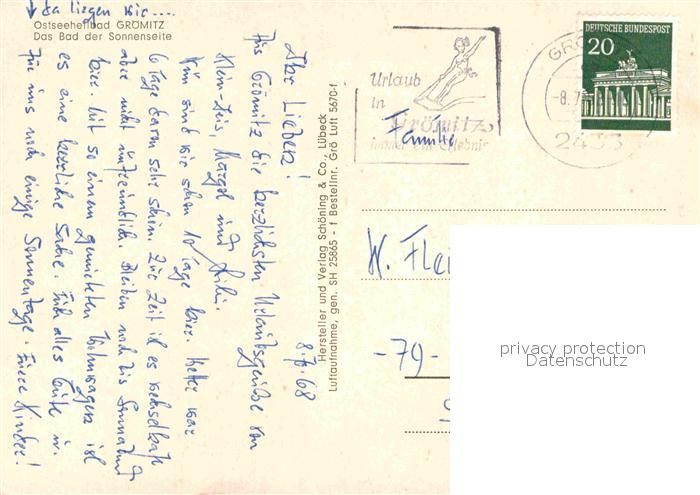 da liegen wir....
Ostseeheilbad GRÖMITZ
Das Bad der Sonnenseite
8.7.68
Ihr Lieben!
Aus Grömitz die herzlichsten Urlaubsgrüße von
Klein-Zeis, Margot und
Nun sind wir schon 10 Tage hier. Wetter war
6 Tage davon sehr schön. Zur Zeit ist es wechselhaft
aber nicht unfreundlich. Bleiben noch bis Sonnabend
hier. Mit so einem gemieteten Wohnwagen ist
es eine herrliche Sache. Euch alles Gute u.
für uns noch einige Sonnentage. Eure Kinder!
Hersteller und Verlag Schöning & Co., Lübeck
Luftaufnahme, gen. SH 25865 - f Bestellnr. Grö Luft 5670-f
Urlaub
in
Grömitz
immer ein Erlebnis
GRÖ
-8.7
2433
DEUTSCHE BUNDESPOST
20
Familie
W. Flei
-79-
privacy protection
Datenschutz